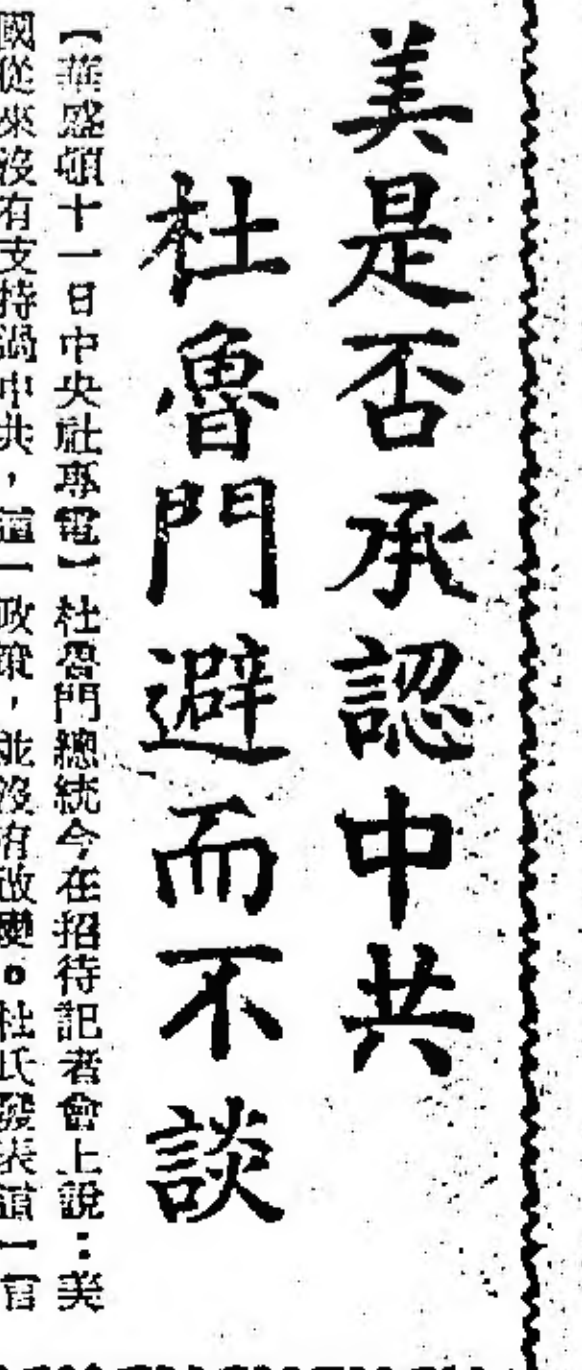 美是否承認中共
杜魯門避而不談
【華盛頓十一日中央社專電】杜魯門總統今在招待記者會上說：美
國從來沒有支持過中共，這一政策，並沒有改變。杜氏發表這一宣